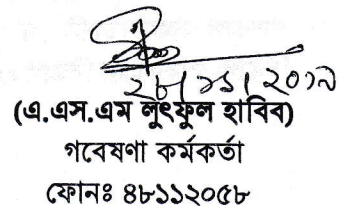 ২৮/১১/২০১৯
(এ.এস.এম লুৎফুল হাবিব)
গবেষণা কর্মকর্তা
ফোনঃ ৪৮১১২০৫৮